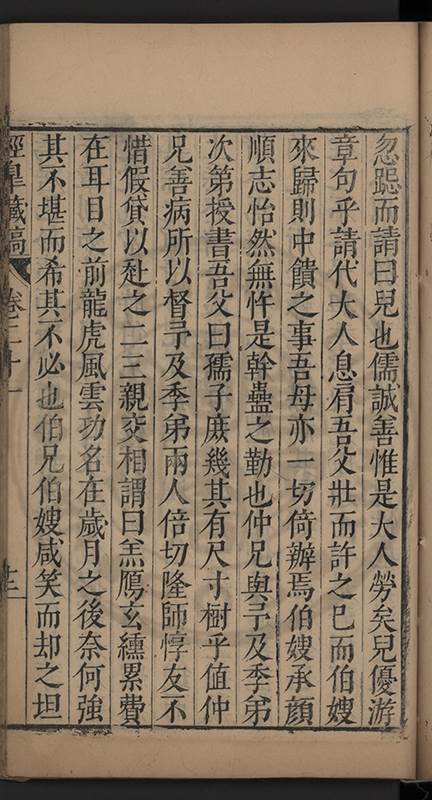 忽跽而請曰兒也儒誠善惟是大人勞矣兒優游
章句乎請代大人息肩吾父壯而許之已而伯嫂
來歸則中饋之事吾母亦一切倚辦焉伯嫂承顏
順志怡然無忤是幹蠱之勤也仲兄與予及季弟
次第授書吾父曰孺子庶幾其有尺寸樹乎值仲
兄善病所以督予及季弟兩人倍切隆師惇友不
惜假貸以赴之二三親交相謂曰羔鴈玄纁累費
在耳目之前龍虎風雲功名在歲月之後奈何強
其不堪而希其不必也伯兄伯嫂咸笑而却之坦
涇臯藏稿 卷二十一 十三